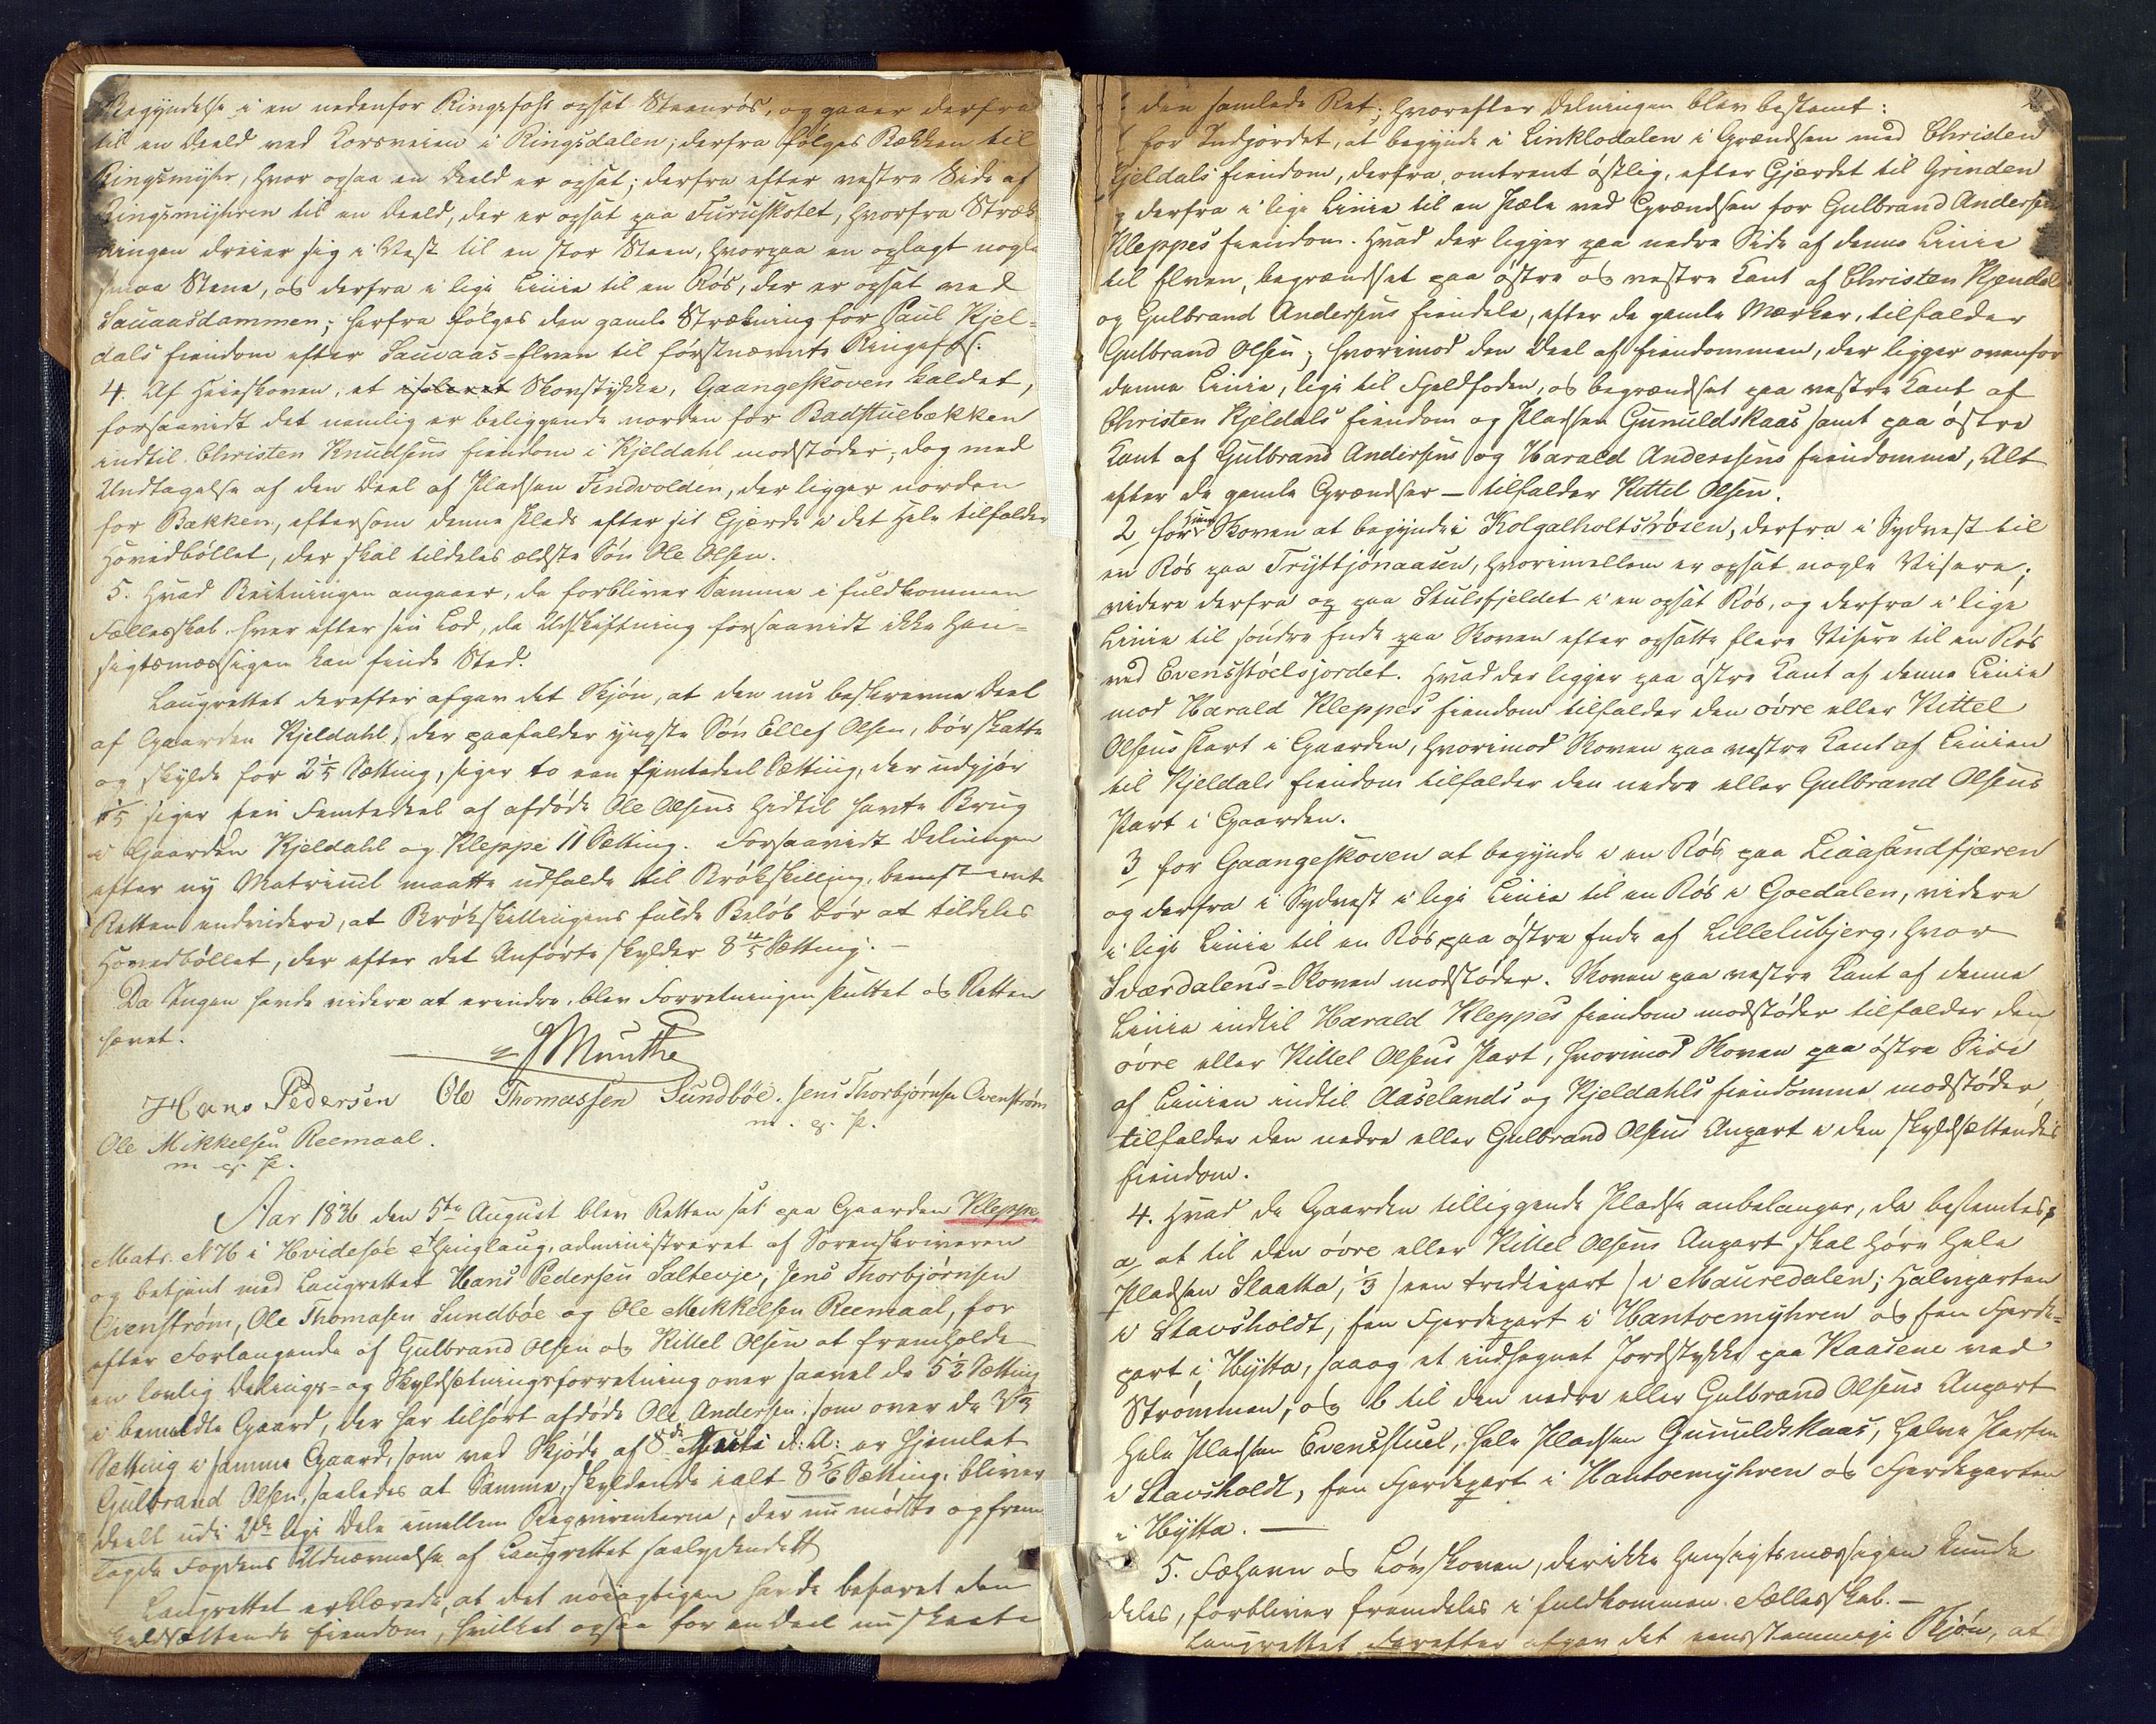 Begyndelse i en nedenfor Ringsfoss opsat Steenrøs, og gaaer derfra
til en Deeld ved Korsveien i Ringsdalen; derfra følges Bækken til
Ringsmyhr, hvor ogsaa en Deeld er opsat; derfra efter vestre Side af
Ringsmyhren til en Deeld, der er opsat paa Furuskotet, hvorfra Stræk-
ningen dreier sig i Vest til en stor Steen, hvorpaa en oplagt nogle
smaa Stene, og derfra i lige Linie til en Røs, der er opsat ved
Sauaasdammen; herfra følges den gamle Strækning for Paul Kjel-
dals Eiendom efter Sauvaas-Elven til førstnævnte Ringsfos.
4. Af Heieskoven, et isoleret Skovstykke, Gaangeskoven kaldet,
forsaavidt det nemlig er beliggende norden for Badstuebækken
indtil Christen Knudsens Eiendom i Kjeldahl modstøder, dog med
Undtagelse af den Deel af Pladsen Tindvolden, der ligger norden
for Bækken, eftersom denne Plads efter sit Gjærde i det Hele tilfalder
Hovedbøllet, der skal tildeles ældste Søn Ole Olsen.
5. Hvad Beitningen angaaer, da forbliver Samme i fuldkommen
Fællesskab, hver efter sin Lod, da Udskiftning forsaavidt ikke Hen-
sigtsmæssigen kan finde Sted.
Laugrettet derefter afgav det Skjøn, at den nu beskrevne Deel
af Gaarden Kjeldahl, der paafalder yngste Søn Ellef Olsen, bør skatte
og skylde for 2 1/5 Sætting, siger to een femtedeel Sætting, der udgjør
1/5 siger een Femtedeel af afdøde Ole Olsens hidtil havte Brug
i Gaarden Kjeldahl og Kleppe 11 Sætting. Forsaavidt Delningen
efter ny Matricul maatte udfalde til Brøkskilling, bemærkede
Retten endvidere, at Brøkskillingens fulde Beløb bør at tildeles
Hovedbøllet, der efter det Anførte skylder 8 4/5 Sætting. —
Da Ingen havde videre at erindre, blev Forretningen sluttet og Retten
hævet.
Munthe
Hans Pedersen Ole Thomassen Sundbøe. Jens Thorbjørnsen Qvenstrøm
m. p. P.
Ole Mikkelsen Reemaal.
m. p. P.
Aar 1836 den 5te August blev Retten sat paa Gaarden Kleppe,
Matr. N 76 i Hvidesøe Thinglaug, administreret af Sorenskriveren
og betjent med Laugrettet Hans Pedersen Saltevje, Jens Thorbjørnsen
Qvenstrøm, Ole Thomasen Sundbøe og Ole Mekkelsen Reemaal, for
efter Forlangende af Gulbrand Olsen og Kittel Olsen at fremholde
en lovlig Delings- og Skyldsætningsforretning over saavel de 5 1/2 Sætting
i bemeldte Gaard, der har tilhørt afdøde Ole Andersen som over de 3 1/3
Sætting i samme Gaard, som ved Skjøde af 8de d. A. er hjemlet
Gulbrand Olsen, saaledes at Samme, skyldende ialt 8 5/6 Sætting, bliver
deelt udi 2de lige Dele imellem Reqvirenterne, der nu mødte og frem
lagde Fogdens Udnævnelse af Laugrettet saalydende
Laugrettet erklærede, at det nøiagtigen havde befaret den
skyldsættende Eiendom, hvilket ogsaa for en Deel nu skeete
den samlede Ret; hvorefter Delningen blev bestemt:
for Indjordet, at begynde i Linklodalen i Grændsen med Christen
Kjeldals Eiendom, derfra omtrent østlig, efter Gjærdet til Grinden
og derfra i lige Linie til en Pæle ved Grændsen for Gulbrand Andersen
Kleppes Eiendom. Hvad der ligger paa nedre Side af denne Linie
til Elven, begrændset paa østre og vestre Kant af Christen Kjendal
og Gulbrand Andersens Eiendele, efter de gamle Mærker, tilfalder
Gulbrand Olsen; hvorimod den Deel af Eiendommen, der ligger ovenfor
denne Linie, lige til Fjeldfoden, og begrændset paa vestre Kant af
Christen Kjeldals Eiendom og Pladsen Gunuldskaas samt paa østre
Kant af Gulbrand Andersens og Harald Anderssens Eiendomme, Alt
efter de gamle Grændser — tilfalder Kittel Olsen.
2 for Skoven at begynde i Kolgalholtsrøsen, derfra i Sydvest til
en Røs paa Tryttjønaasen, hvorimellem er opsat nogle Visere;
videre derfra op paa Skulsfjeldet i en opsat Røs, og derfra i lige
Linie til søndre Ende paa Skoven efter opsatte flere Visere til en Røs
ved Evensstøelsjordet. Hvad der ligger paa østre Kant af denne Linie
mod Harald Kleppes Eiendom tilfalder den øvre eller Kittel
Olsens Part i Gaarden, hvorimod Skoven paa vestre Kant af Linien
til Kjeldals Eiendom tilfalder den nedre eller Gulbrand Olsens
Part i Gaarden.
3 for Gaangeskoven at begynde i en Røs paa Liaasandfjæren
og derfra i Sydvest i lige Linie til en Røs i Goedalen, videre
i lige Linie til en Røs paa østre Ende af Lillelubjerg, hvor
Sværdalens-Skoven modstøder. Skoven paa vestre Kant af denne
Linie indtil Harald Kleppes Eiendom modstøder tilfalder den
øvre eller Kittel Olsens Part, hvorimod Skoven paa østre Side
af Linien indtil Aaselands og Kjeldahls Eiendomme modstøder,
tilfalder den nedre eller Gulbrand Olsens Anpart i den skyldsættende
Eiendom.
4. Hvad de Gaarden tilliggende Pladse anbelanger, da bestemtes,
a, at til den øvre eller Kittel Olsens Anpart skal høre hele
Pladsen Slaatta, 1/3 /: een trediepart / i Mauredalen; Halvparten
i Stavsholdt, een Fjerdepart i Hantvemyhren og een Fjerde-
part i Hytta, saaog et indhegnet Jordstykke paa Kaasene ved
Strømmen, og b til den nedre eller Gulbrand Olsens Anpart
hele Pladsen Evensstuel, hele Pladsen Gunuldskaas, halve Parten
i Stavsholdt, een Fjerdepart i Hantoemyhren og Fjerdeparten
i Hytta. —
5. Fæhavn og Løvskoven, der ikke Hensigtsmæssigen kunde
deles, forbliver fremdeles i fuldkommen Fællesskab. —
Laugrettet derefter afgav det eenstemmige Skjøn, at